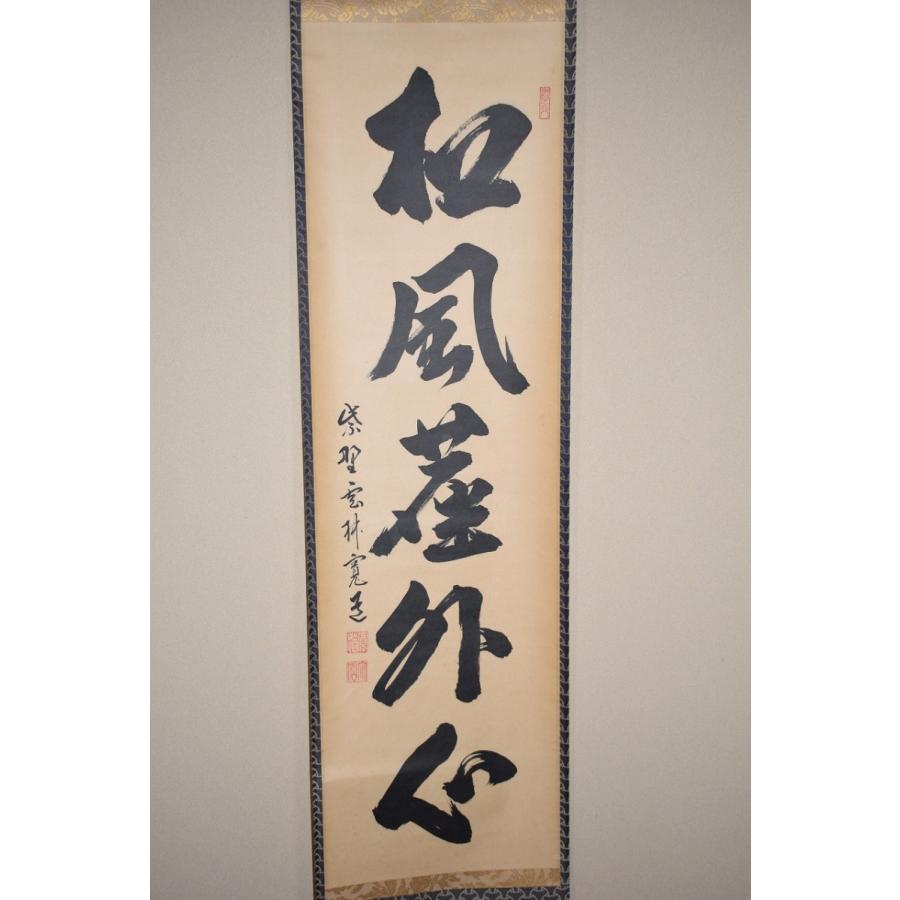 松風塵外心
紫野雲林寛道